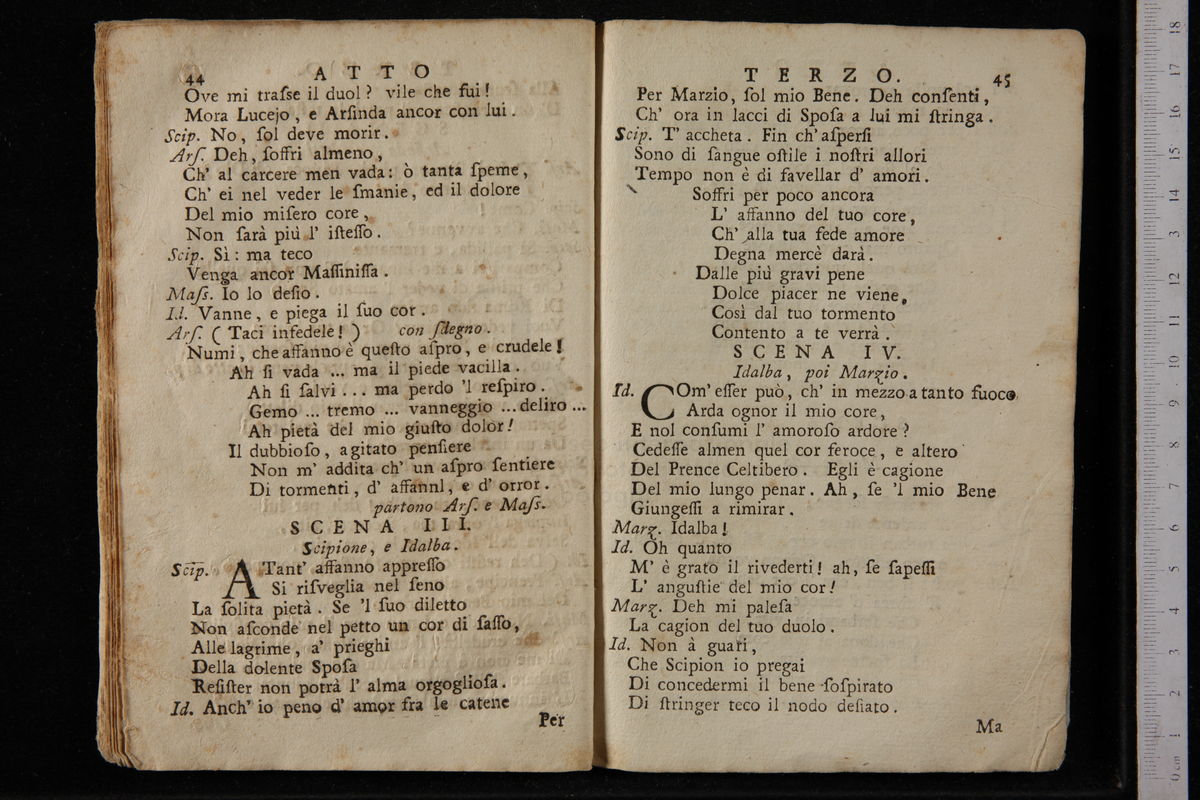 44 ATTO
Ove mi traſse il duol? vile che fui!
Mora Lucejo, e Arſinda ancor con lui.
Scip. No, ſol deve morir.
Arſ. Deh, ſoffri almeno,
Ch' al carcere men vada: ò tanta ſpeme,
Ch' ei nel veder le ſmanie, ed il dolore
Del mio miſero core,
Non ſarà più l' iſteſſo.
Scip. Sì: ma teco
Venga ancor Maſſiniſſa.
Maſs. Io lo deſio.
Id. Vanne, e piega il ſuo cor.
Arſ. (Taci infedele!) con ſdegno.
Numi, che affanno è queſto aſpro, e crudele!
Ah ſi vada ... ma il piede vacilla.
Ah ſi ſalvi ... ma perdo 'l reſpiro.
Gemo ... tremo ... vanneggio ... deliro ...
Ah pietà del mio giuſto dolor!
Il dubbioſo, agitato penſiere
Non m' addita ch' un aſpro ſentiere
Di tormenti, d' affannI, e d' orror.
partono Arſ. e Maſs.
SCENA III.
Scipione, e Idalba.
Scip. A Tant' affano appreſſo
Si riſveglia nel ſeno
La ſolita pietà. Se 'l ſuo diletto
Non aſconde nel petto un cor di ſaſſo,
Alle lagrime, a' prieghi
Della dolente Spoſa
Reſiſter non potrà l' alma orgoglioſa.
Id. Anch' io peno d' amor fra le catene
Per
TERZO. 45
Per Marzio, ſol mio Bene. Deh conſenti,
Ch' ora in lacci di Spoſa a lui mi ſtringa.
Scip. T' accheta. Fin ch' aſperſi
Sono di ſangue oſtile i noſtri allori
Tempo non è di favellar d' amori.
Soffri per poco ancora
L' affanno del tuo core,
Ch' alla tua fede amore
Degna mercè darà.
Dalle più gravi pene
Dolce piacer ne viene,
Così dal tuo tormento
Contento a te verrà.
SCENA IV.
Idalba, poi Marzio.
Id. COm' eſſer può, ch' in mezzo a tanto fuoco
Arda ognor il mio core,
E nol conſumi l' amoroſo ardore?
Cedeſſe almen quel cor feroce, e altero
Del Prence Celtibero. Egli è cagione
Del mio lungo penar. Ah, ſe 'l mio Bene
Giungeſſi a rimirar.
Marz. Idalba!
Id. Oh quanto
M' è grato il rivederti! ah, ſe ſapeſſi
L' anguſtie del mio cor!
Marz. Deh mi paleſa
La cagion del tuo duolo.
Id. Non à guari,
Che Scipion io pregai
Di concedermi il bene ſoſpirato
Di ſtringer teco il nodo deſiato.
Ma
0 cm 1 2 3 4 5 6 7 8 9 10 11 12 13 14 15 16 17 18